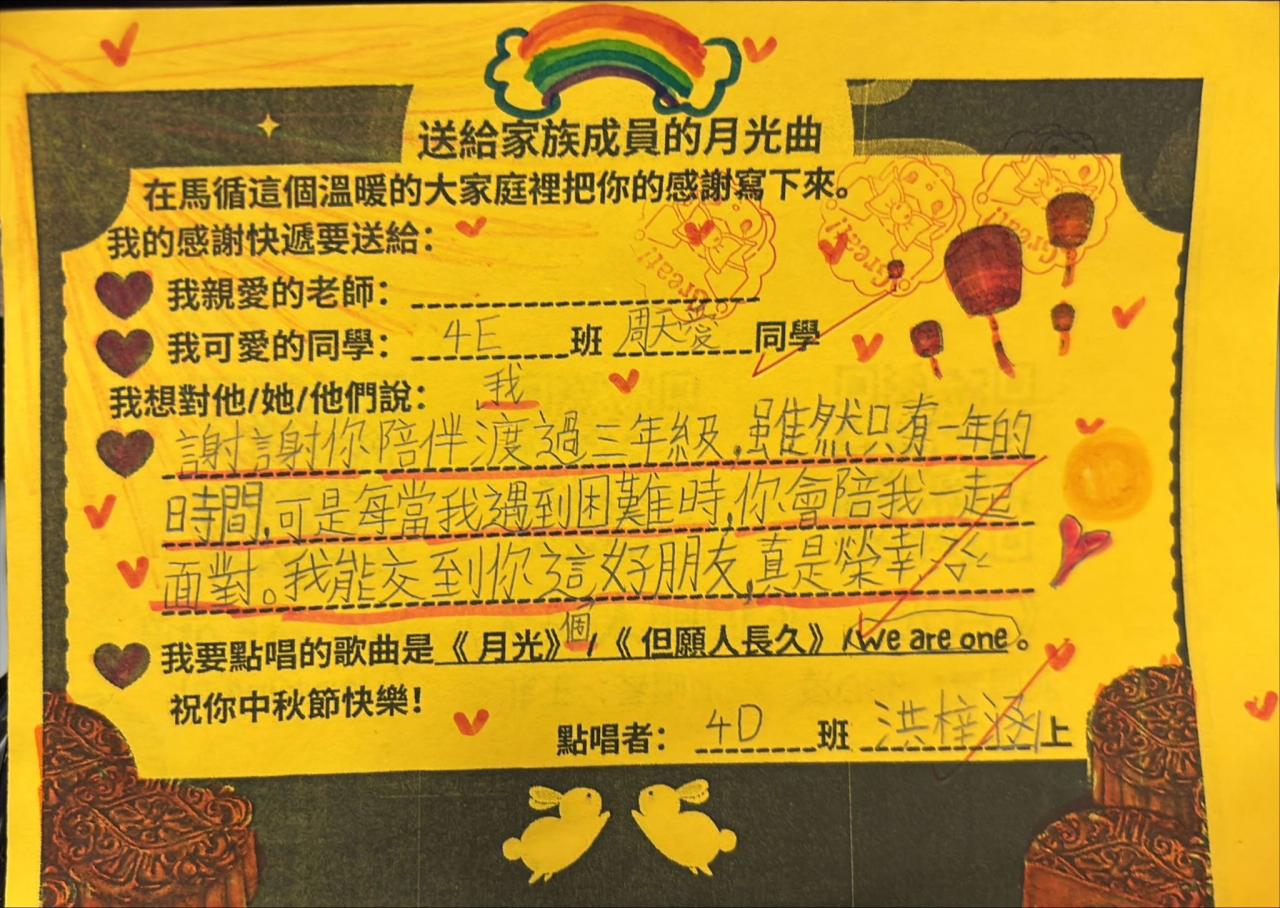 送給家族成員的月光曲
在馬循這個溫暖的大家庭裡把你的感謝寫下來。
我的感謝快遞要送給：
我親愛的老師：
我可愛的同學： 4E 班 周天愛 同學
我想對他/她/他們說：
我
謝謝你陪伴渡過三年級,雖然只有一年的
時間,可是每當我遇到困難時,你會陪我一起
面對。我能交到你這好朋友,真是榮幸
個
我要點唱的歌曲是《月光》/《但願人長久》/We are one。
祝你中秋節快樂！
點唱者： 4D 班 洪梓涵 上
Great!
Great!
Great!